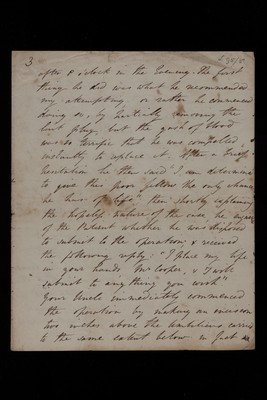 3
after 8 o'clock in the Evening. The first
thing he did was what he recommended
my attempting, or rather he commenced
doing so, by partially removing the
lint plug, but the gush of blood
was so terrific that he was compelled
instantly to replace it. After a brief
hesitation he then said "I am determined
to give this poor fellow the only chance
he has of life". Then shortly explaining
the hopeless nature of the case, he
of the Patient whether he was disposed
to submit to the operation, & received
the following reply: "I place my life
in your hands, Mr Cooper, & I will
submit to any thing you wish"
Your Uncle immediately commenced
the operation by making an incision
two inches above the Umbilicus, carried
to the same extent below in fact